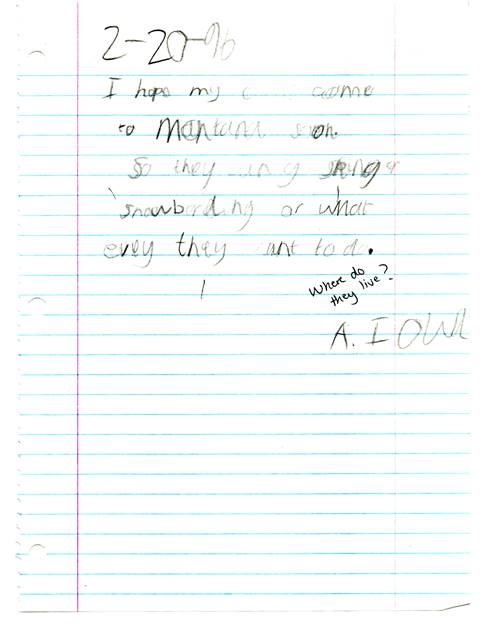 2-20-96
I hope my come
to Montana soon.
So they
snowbording or what
evey they want to do.
Where do
they live?
A. IOWA